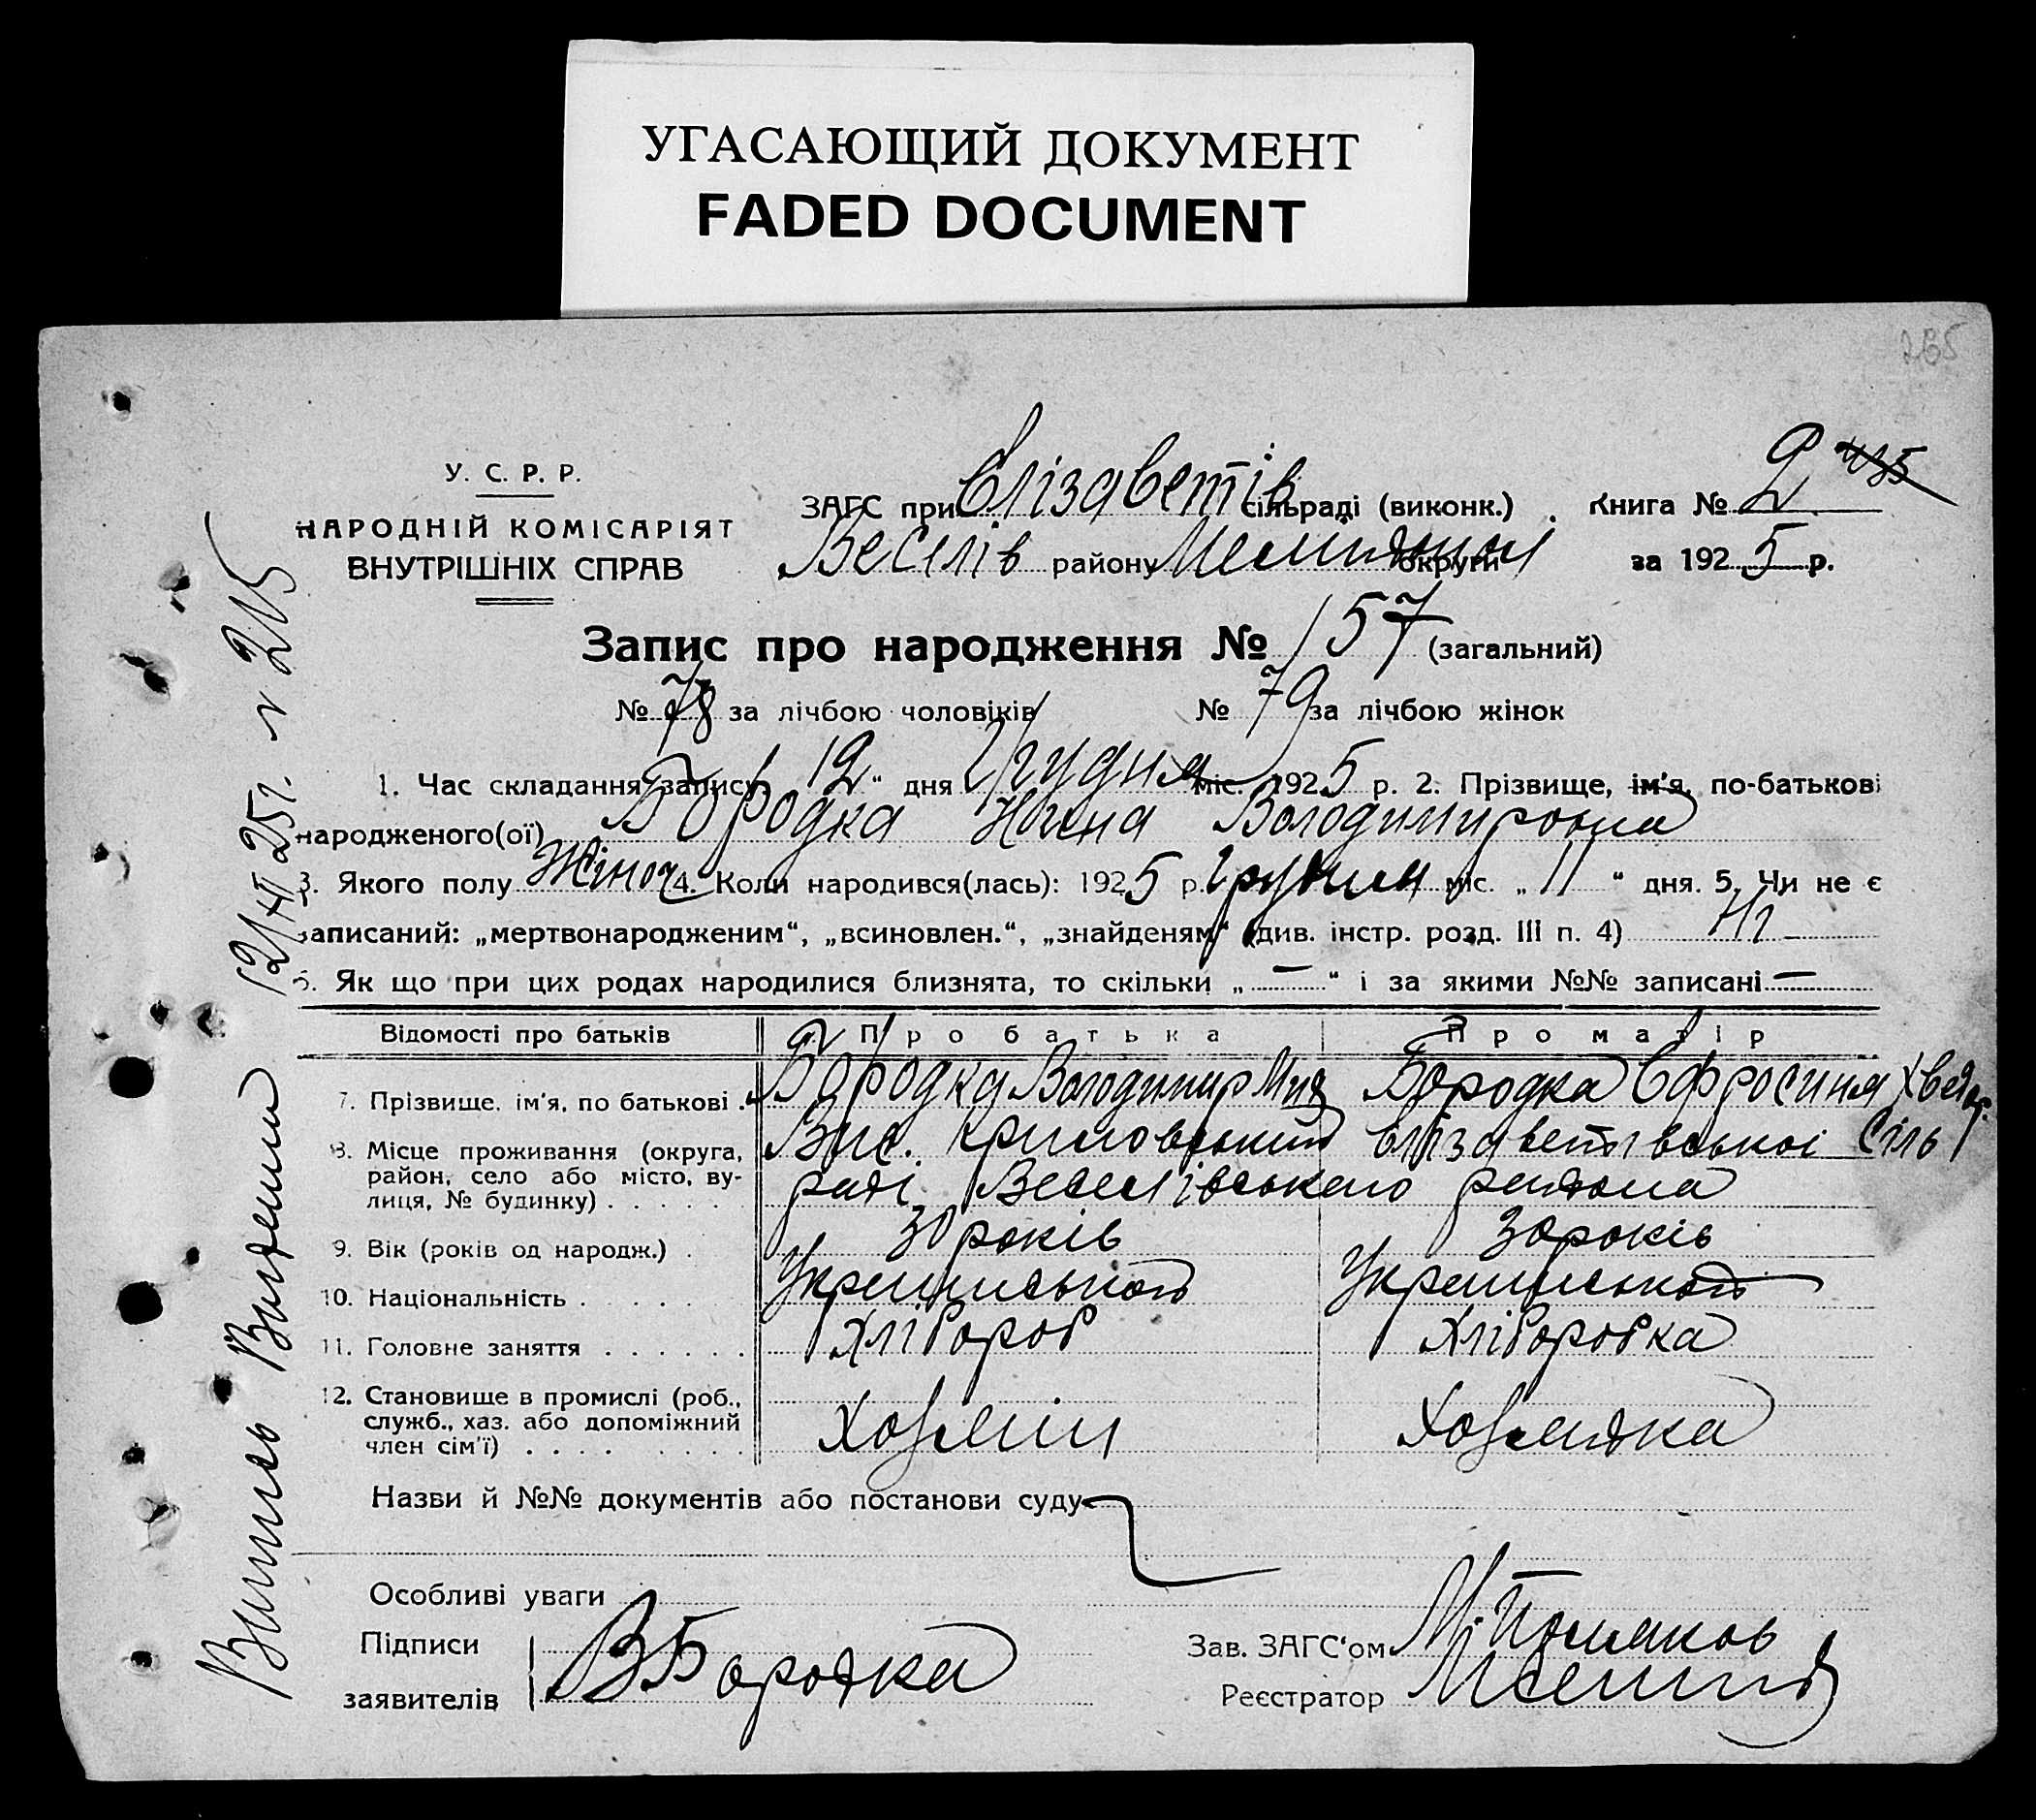 УГАСАЮЩИЙ ДОКУМЕНТ
FADED DOCUMENT
У. С. Р. Р.
НАРОДНІЙ КОМІСАРІЯТ
ВНУТРІШНІХ СПРАВ
ЗАГС при Єлізаветів сільраді (виконк.)
Веселів району округи
Книга № 2
за 1925 р.
Запис про народження № 157 (загальний)
№ 78 за лічбою чоловіків № 79 за лічбою жінок
1. Час складання запису 12 " дня Грудня міс. 1925 р. 2. Прізвище, ім'я, по-батькові
народженого(ої) Бородка Нина Володимировна
3. Якого полу Жіноч 4. Коли народився(лась): 1925 р. Грудня міс. „ 11 " дня. 5. Чи не є
записаний: „мертвонародженим", „всиновлен.", „знайденям" (див. інстр. розд. III п. 4) Ні
6. Як що при цих родах народилися близнята, то скільки „ — " і за якими №№ записані —
Відомості про батьків Про батька Про матір
7. Прізвище, ім'я, по батькові . Бородка Володимир Бородка Єфросиния
8. Місце проживання (округа, район, село або місто, вулиця, № будинку) . . . . . Єлізаветівської Сіль
раді Веселівського района
9. Вік (років од народж.) . 30 років 30 років
10. Національність . . . . . . Українськой Українськой
11. Головне заняття . . . . . . Хлібороб Хліборобка
12. Становище в промислі (роб., служб., хаз. або допоміжний член сім'ї) . . . . . . . Хозяїн Хозяйка
Назви й №№ документів або постанови суду
Особливі уваги
Підписи
заявителів ВБородка
Зав. ЗАГС'ом М. Поляков
Реєстратор
Витяг Видани 12/XII 25 г. № 215